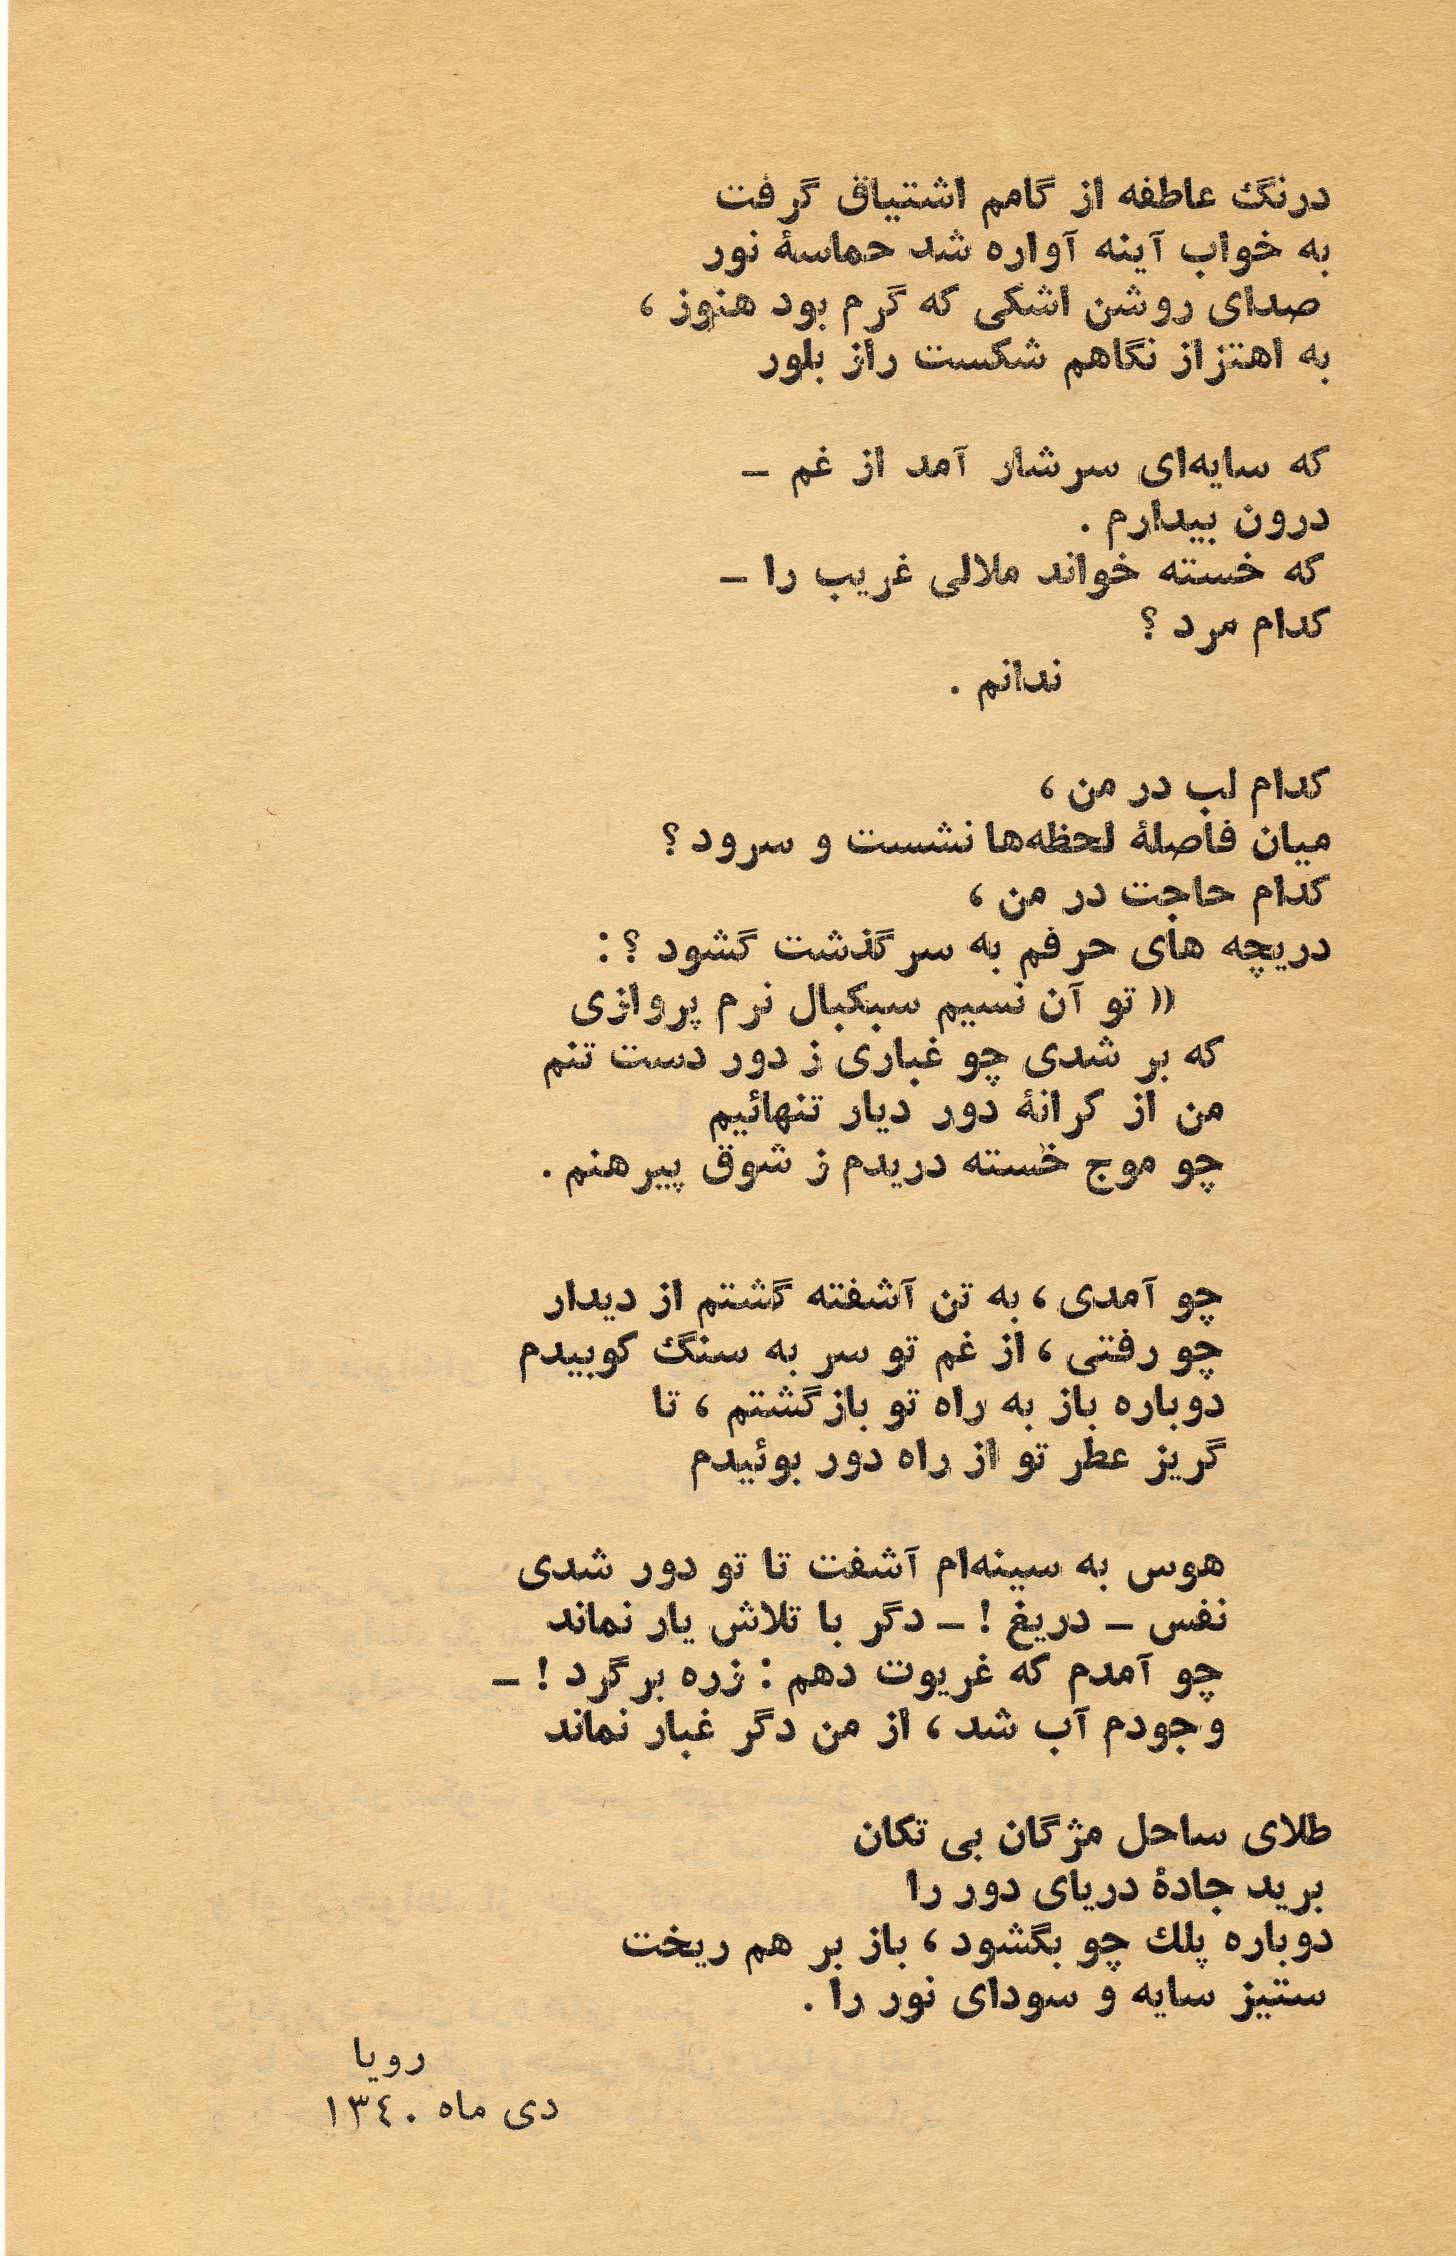 درنگ عاطفه از گامم اشتیاق گرفت
به خواب آینه آواره شد حماسهٔ نور
صدای روشن اشکی که گرم بود هنوز ،
به اهتزاز نگاهم شکست راز بلور
که سایه‌ای سرشار آمد از غم –
درون بیدارم .
که خسته خواند ملالی غریب را –
کدام مرد ؟
ندانم .
کدام لب در من ،
میان فاصلهٔ لحظه‌ها نشست و سرود ؟
کدام حاجت در من ،
دریچه های حرفم به سرگذشت گشود ؟ :
(( تو آن نسیم سبکبال نرم پروازی
که بر شدی چو غباری ز دور دست تنم
من از کرانهٔ دور دیار تنهائیم
چو موج خسته دریدم ز شوق پیرهنم .
چو آمدی ، به تن آشفته گشتم از دیدار
چو رفتی ، از غم تو سر به سنگ کوبیدم
دوباره باز به راه تو بازگشتم ، تا
گریز عطر تو از راه دور بوئیدم
هوس به سینه‌ام آشفت تا تو دور شدی
نفس – دریغ ! – دگر با تلاش یار نماند
چو آمدم که غریوت دهم : زره برگرد ! –
وجودم آب شد ، از من دگر غبار نماند
طلای ساحل مژگان بی تکان
برید جادهٔ دریای دور را
دوباره پلك چو بگشود ، باز بر هم ریخت
ستیز سایه و سودای نور را .
رویا
دی ماه ۱۳٤۰